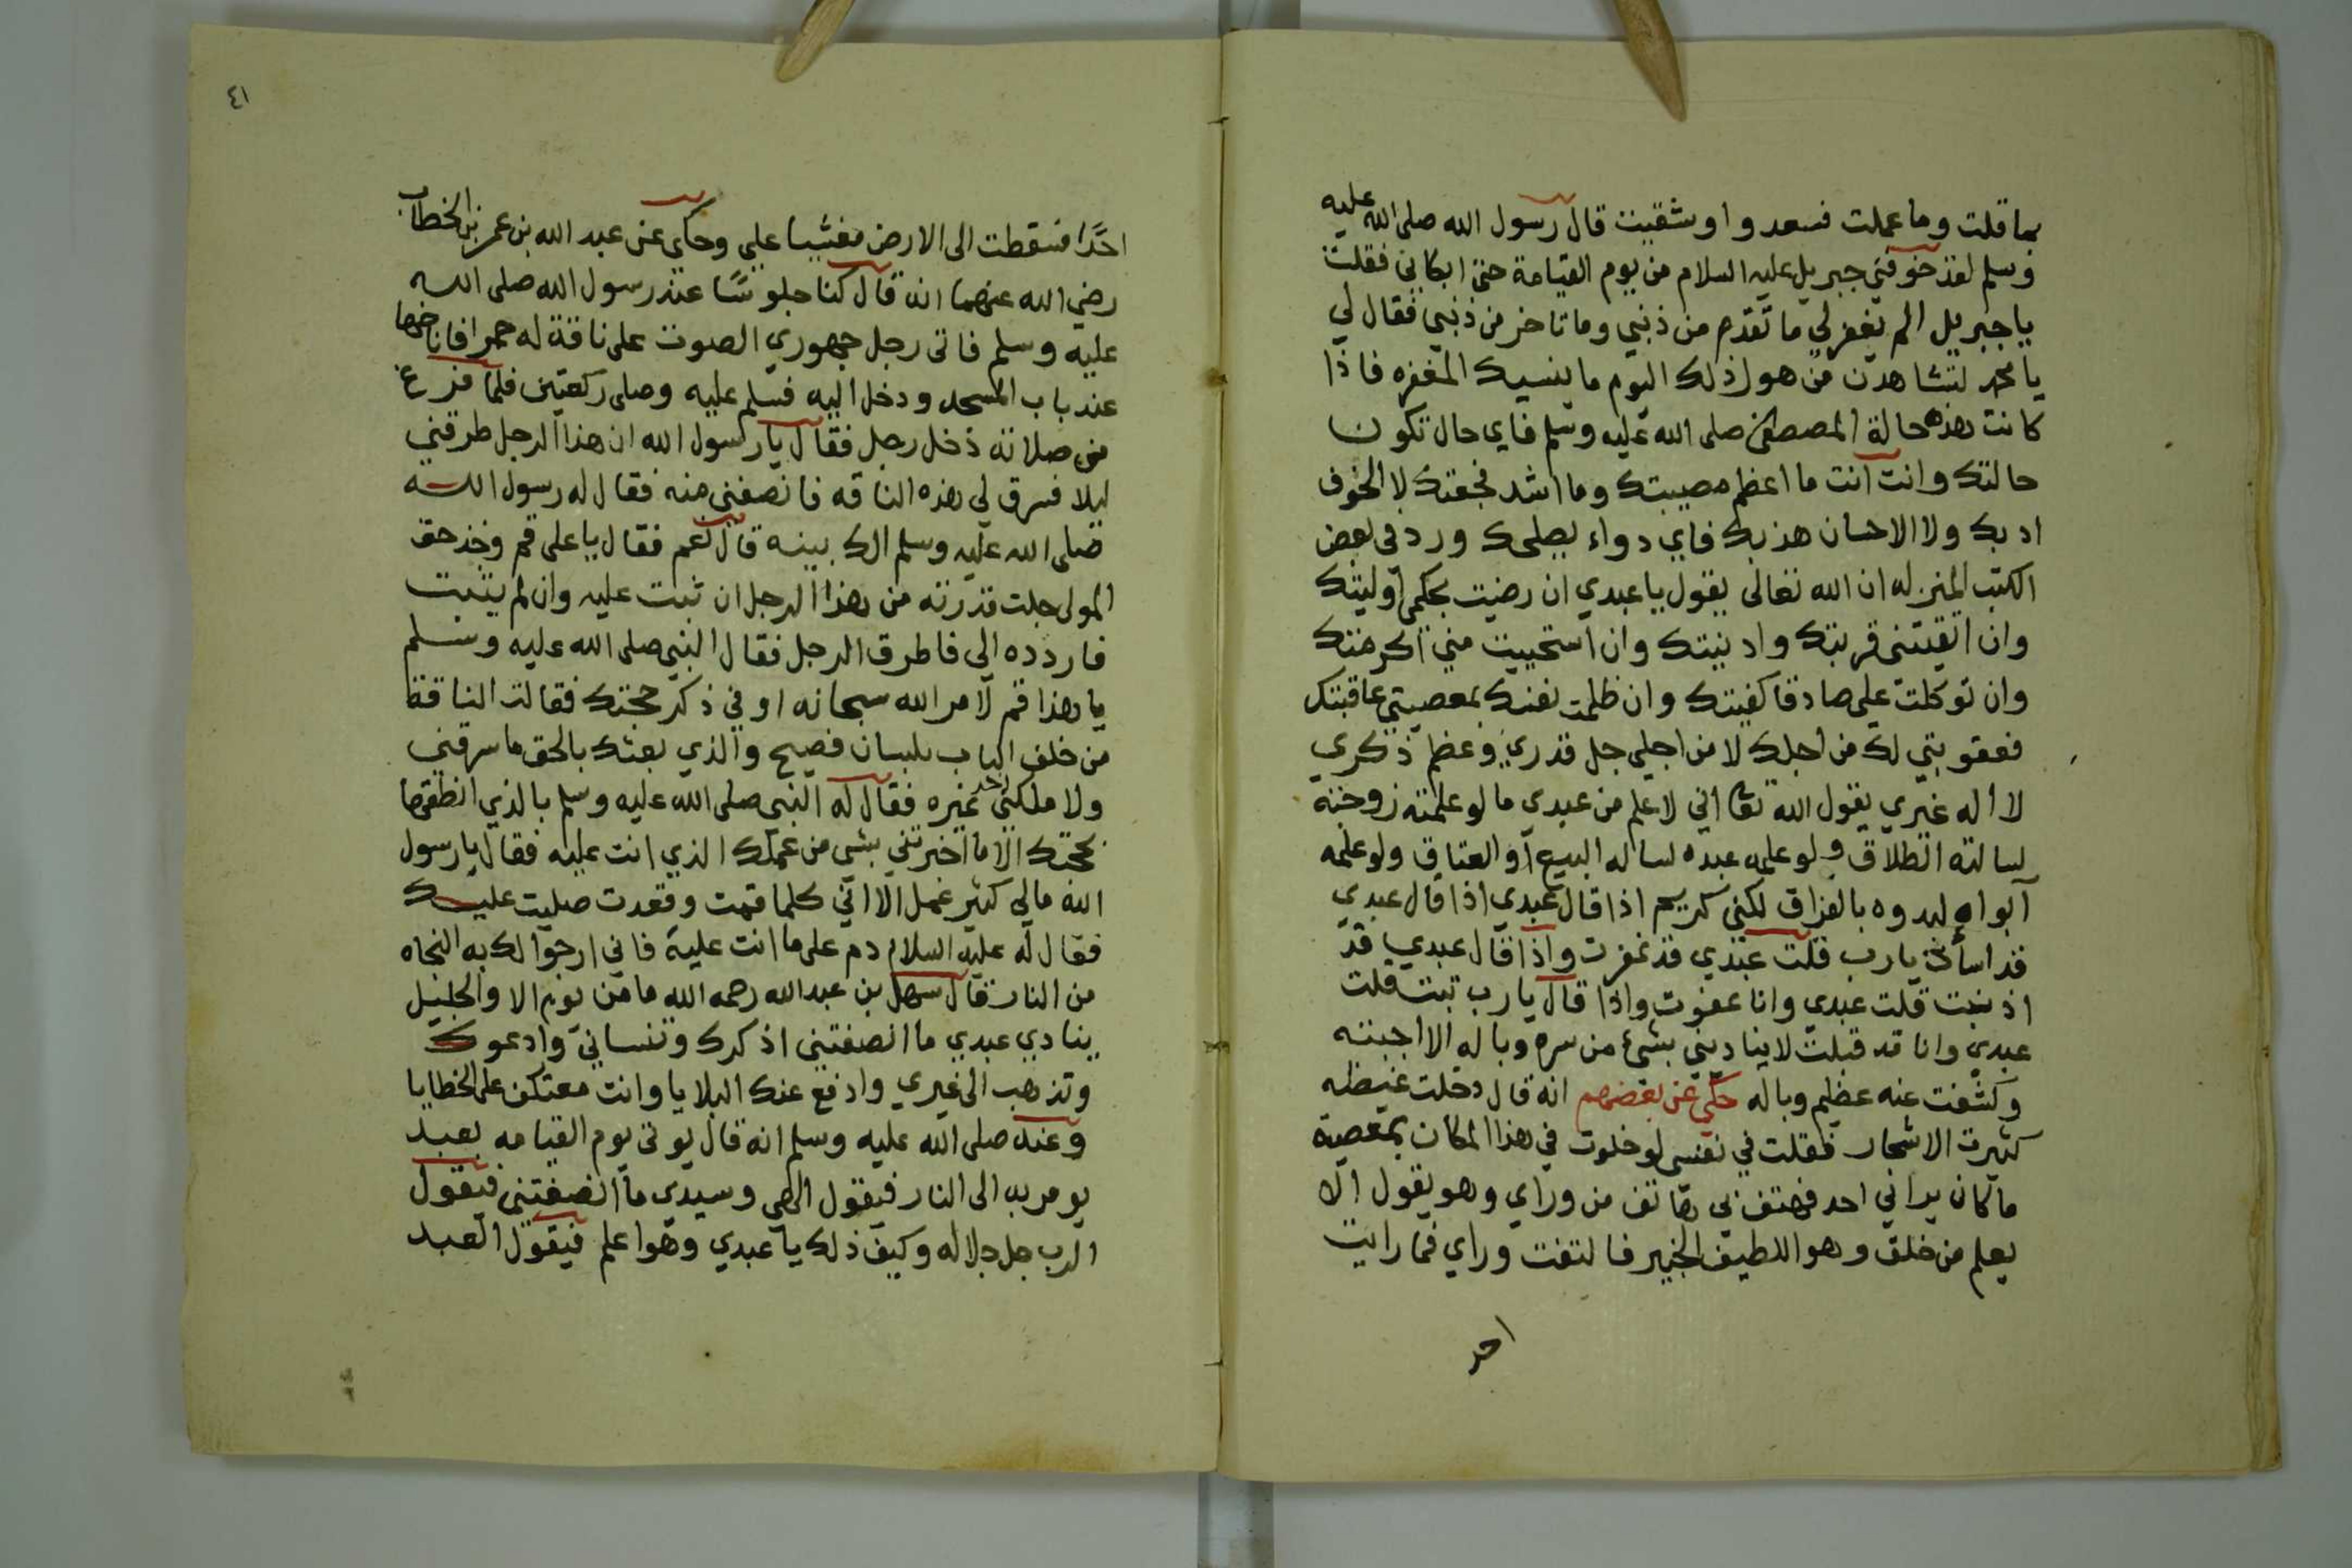 بما قلت وما عملت فسعد وا وشقيت قال رسول الله صلى الله عليه
وسلم لقد خوفني جبريل عليه السلام من يوم القيامة حتى ابكاني فقلت
يا جبريل الم يغفر لي ما تقدم من ذنبي وما تاخر من ذنبي فقال لي
يا محمد لتشاهدن من هول ذلك اليوم ما ينسيك المغفره فاذا
كانت هذه حالة المصطفى صلى الله عليه وسلم فاي حال تكون
حالتك وانت انت ما اعظم مصيبتك وما اشد فجعتك لا الخوف
ادبك ولا الاحسان هذبك فاي دواء يصلحك ورد في بعض
الكتب المنزله ان الله تعالى يقول يا عبدي ان رضيت بحكمي اوليتك
وان اتقيتني قربتك وادنيتك وان استحييت مني اكرمتك
وان توكلت علي صادقا كفيتك وان ظلمت نفسك بمعصيتي عاقبتك
فعقوبتي لك من اجلك لا من اجلي جل قدري وعظم ذكري
لا اله غيري يقول الله تعا اني لاعلم من عبدي ما لو علمته زوجته
لسالته الطلاق ولو علمه عبده لساله البيع او العتاق ولو علمه
ابواه لبدوه بالفراق لكني كريم اذا قال عبدي اذا قال عبدي
قد اسأت يا رب قلت عبدي قد غفرت واذا قال عبدي قد
اذنبت قلت عبدي وانا عفوت واذا قال يا رب تبت قلت
عبدي وانا قد قبلت لا يناديني بشئ من سره وباله الا اجبته
وكشفت عنه عظيم وباله حكي عن بعضهم انه قال دخلت غيضه
كثيرت الاشجار فقلت في نفسي لو خلوت في هذا المكان بمعصية
ما كان يراني احد فهتف بي هاتف من وراي وهو يقول الا
يعلم من خلق وهو اللطيف الخبير فالتفت وراي فما رايت
احد
٤١
احدًا فسقطت الى الارض مغشيا علي وحكي عن عبد الله بن عمر بن الخطاب
رضي الله عنهما انه قال كنا جلوسًا عند رسول الله صلى الله
عليه وسلم فاتى رجل جهوري الصوت على ناقة له حمرا فاناخها
عند باب المسجد ودخل اليه فسلم عليه وصلى ركعتين فلما فرغ
من صلاته دخل رجل فقال يا رسول الله ان هذا الرجل طرقني
ليلا فسرق لي هذه الناقه فانصفني منه فقال له رسول الله
صلى الله عليه وسلم الك بينه قال نعم فقال يا علي قم وخذ حق
المولى جلت قدرته من هذا الرجل ان ثبت عليه وان لم يثبت
فاردده الي فاطرق الرجل فقال النبي صلى الله عليه وسلم
يا هذا قم لامر الله سبحانه او في ذكر حجتك فقالت الناقة
من خلف الباب بلسان فصيح والذي بعثك بالحق ما سرقني
ولا ملكني احد غيره فقال له النبي صلى الله عليه وسلم بالذي انطقها
بحجتك الا ما اخبرتني بشي من عملك الذي انت عليه فقال يا رسول
الله مالي كثير عمل الا اني كلما قمت وقعدت صليت عليك
فقال له عليه السلام دم على ما انت عليه فاني ارجوا لك به النجاه
من النار قال سهل بن عبد الله رحمه الله ما من يوم الا والجليل
ينادي عبدي ما انصفتني اذكرك وتنساني وادعوك
وتذهب الى غيري وادفع عنك البلايا وانت معتكف على الخطايا
وعنه صلى الله عليه وسلم انه قال يوتى يوم القيامه بعبد
يومر به الى النار فيقول الهي وسيدي ما انصفتني فيقول
الرب جل جلاله وكيف ذلك يا عبدي وهو اعلم فيقول العبد